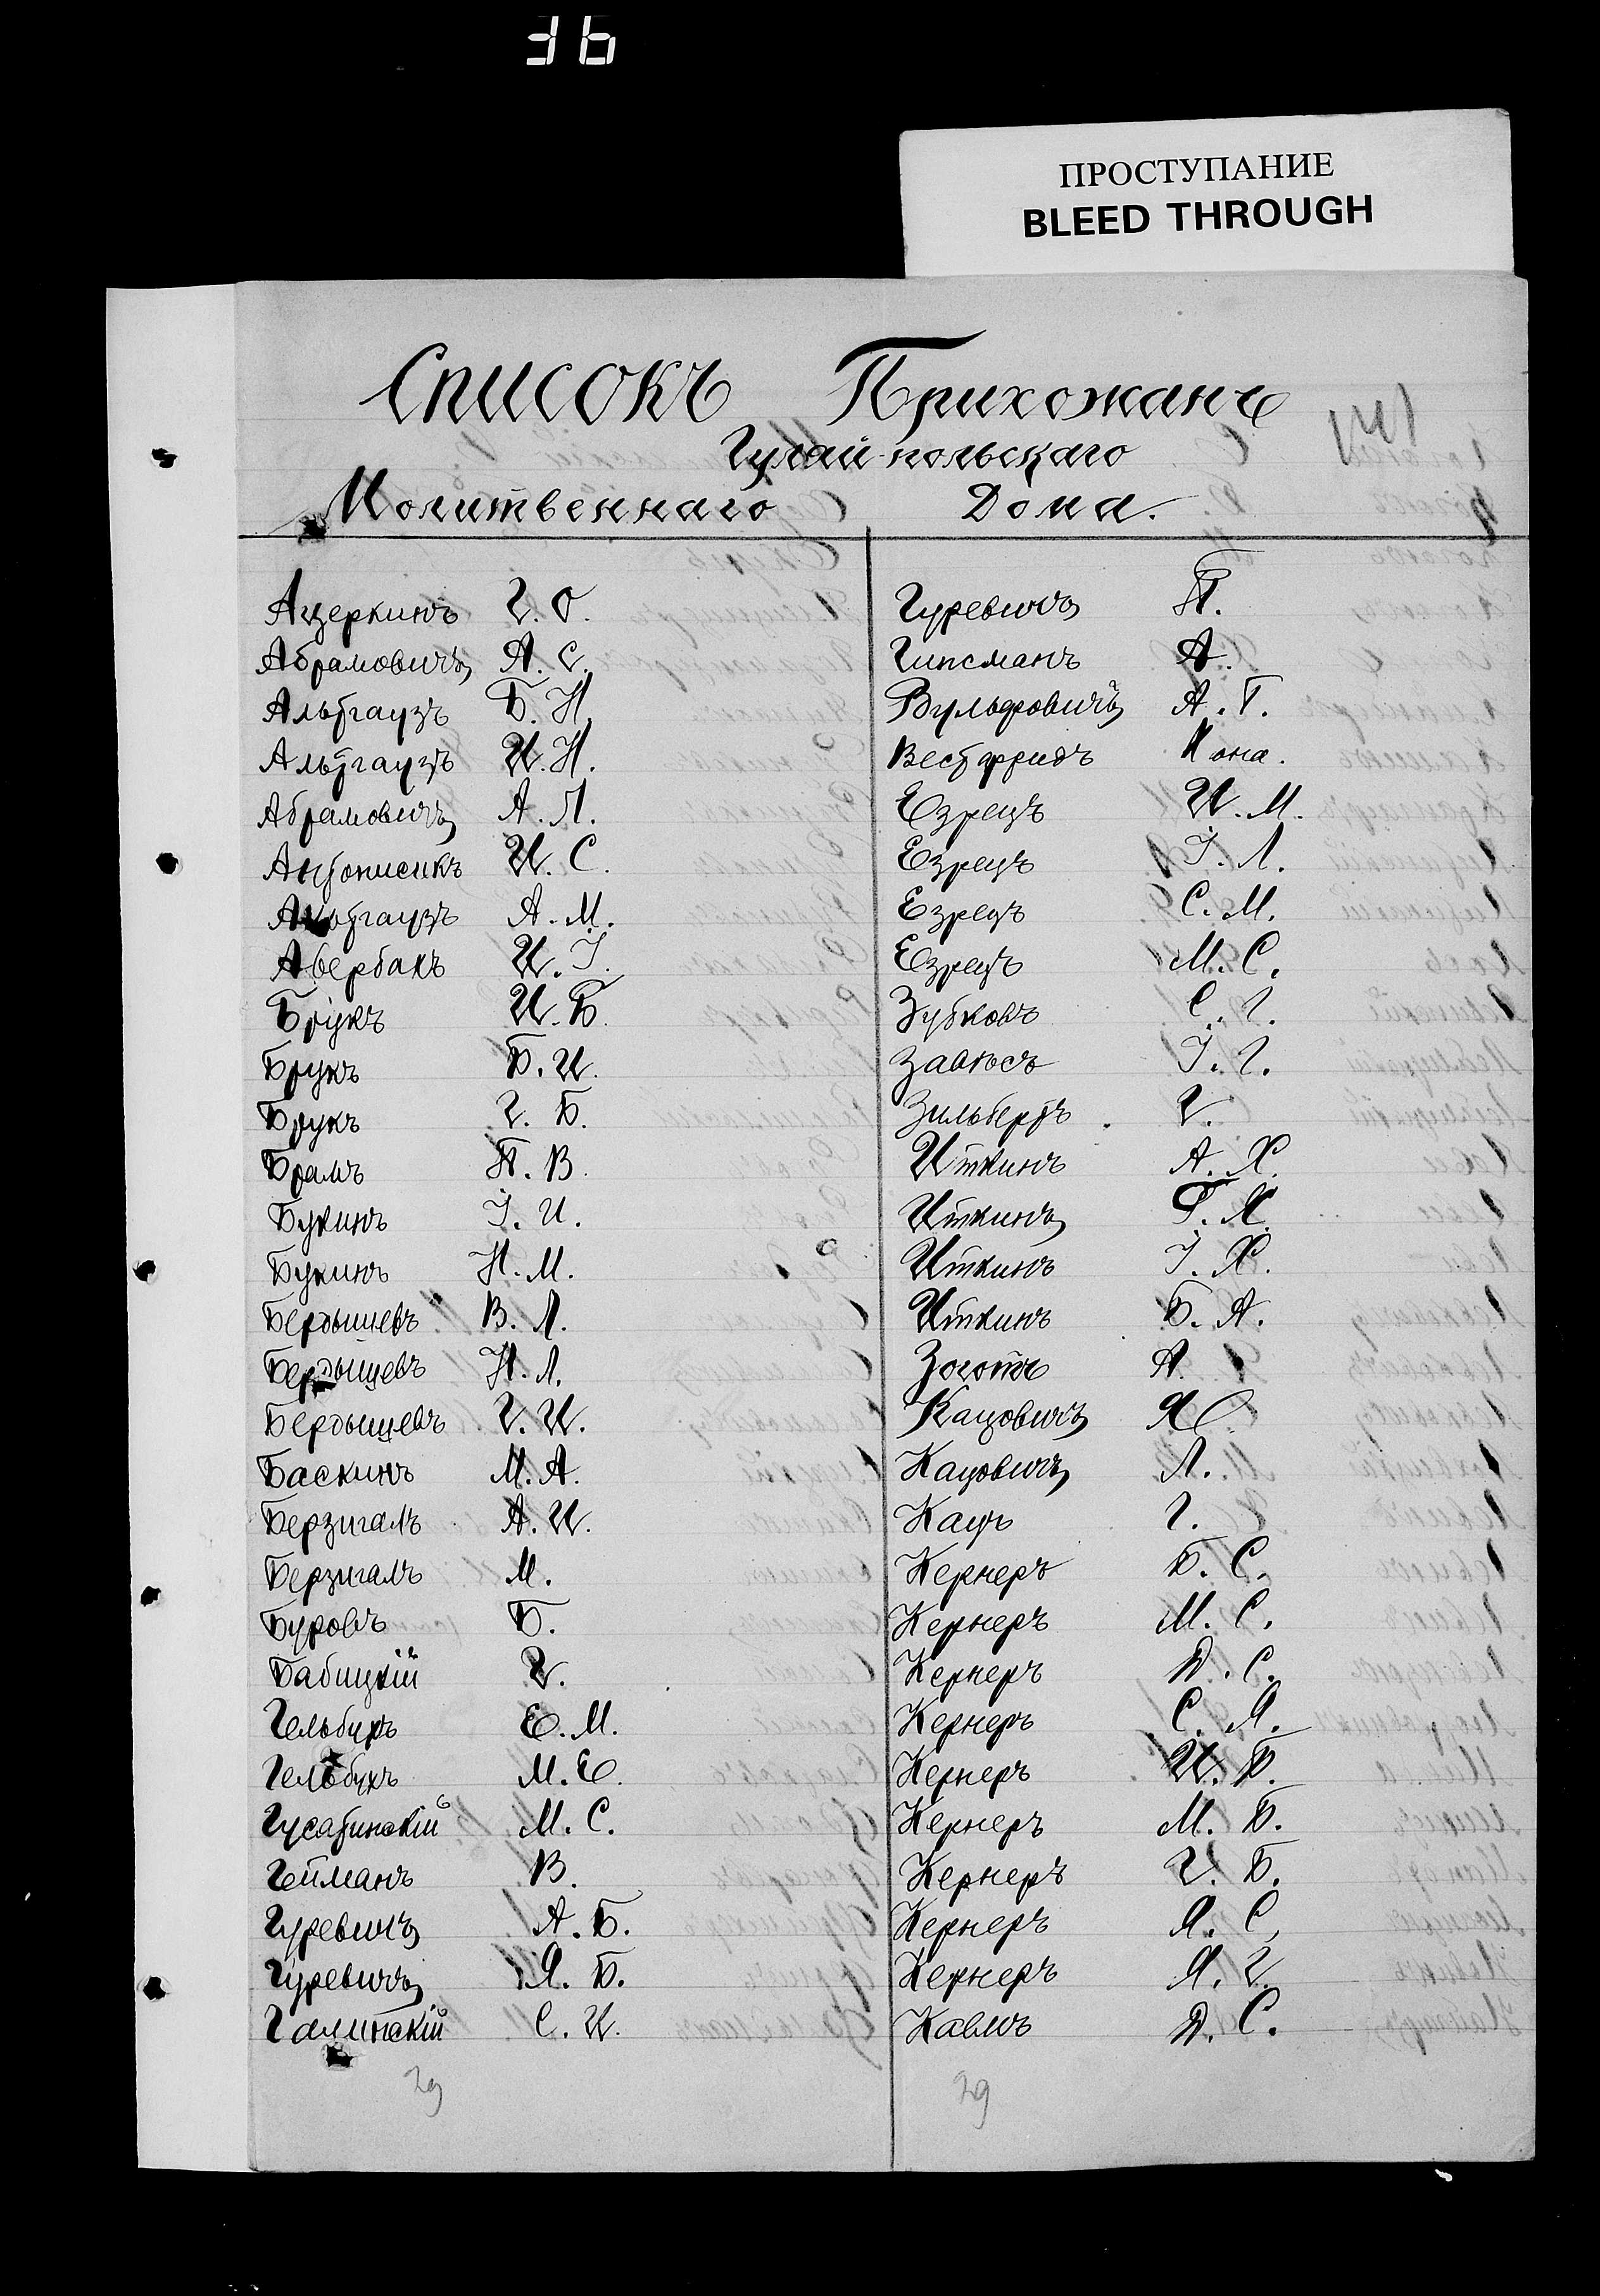 36
ПРОСТУПАНИЕ
BLEED THROUGH
Списокъ Прихожанъ
Гуляй-польскаго
Молитвеннаго Дома.
Ацеркинъ Г. О.
Абрамовичъ А. С.
Альтгаузъ Б. Н.
Альтгаузъ И. Н.
Абрамовичъ А. Л.
Антонисикъ И. С.
Альтгаузъ А. М.
Авербакъ И. І.
Брукъ И. Б.
Брукъ Б. И.
Брукъ Г. Б.
Брамъ П. В.
Букинъ І. И.
Букинъ Н. М.
Бердышевъ В. Л.
Бердышевъ Н. Л.
Бердышевъ Г. И.
Баскинъ М. А.
Берзигалъ А. И.
Берзигалъ М.
Буровъ Б.
Бабицкій Г.
Гельбухъ Е. М.
Гельбухъ М. Е.
Гусатинскій М. С.
Гейманъ В.
Гуревичъ А. Б.
Гуревичъ Я. Б.
Галинскій С. И.
29
Гуревичъ П.
Гипсманъ А.
Вульфовичъ А. Г.
Вестфридъ Иона.
Езрецъ И. М.
Езрецъ І. Л.
Езрецъ С. М.
Езрецъ М. С.
Зубковъ С. Г.
Завюсъ І. Г.
Зильбертъ Г.
Иткинъ А. Х.
Иткинъ Х.
Иткинъ І. Х.
Иткинъ Б. А.
Зоготъ А.
Кацовичъ Я.
Кацовичъ Л.
Кацъ Г.
Кернеръ Б. С.
Кернеръ М. С.
Кернеръ Д. С.
Кернеръ С. Я.
Кернеръ И. Б.
Кернеръ М. Б.
Кернеръ Г. Б.
Кернеръ Я. С.
Кернеръ Я. Г.
Кавлъ Д. С.
29